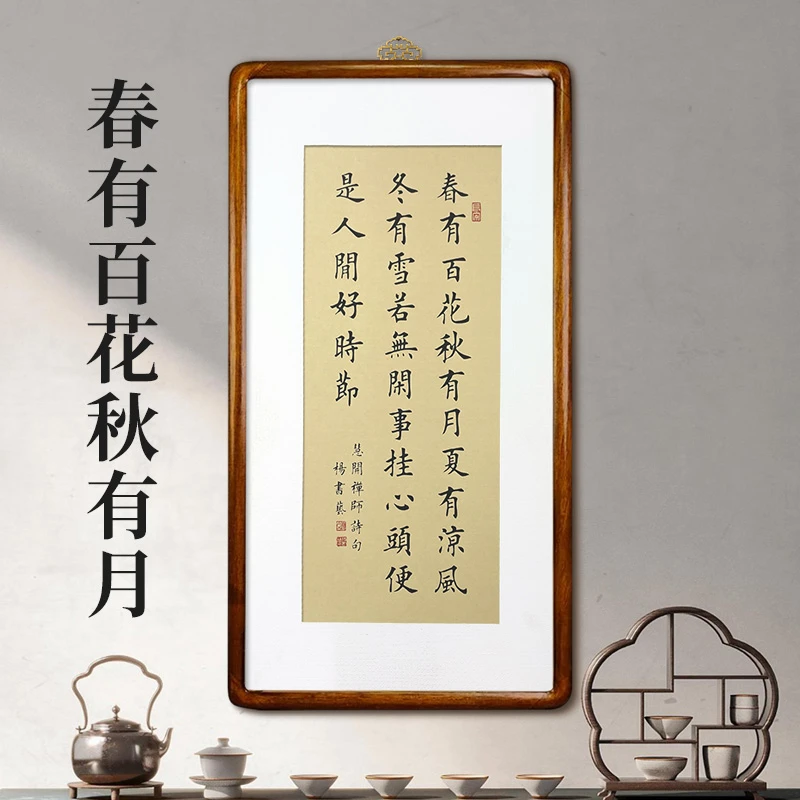 春有百花秋有月
春有百花秋有月夏有涼風
冬有雪若無閑事挂心頭便
是人間好時節
慧開禪師詩句
楊書藝